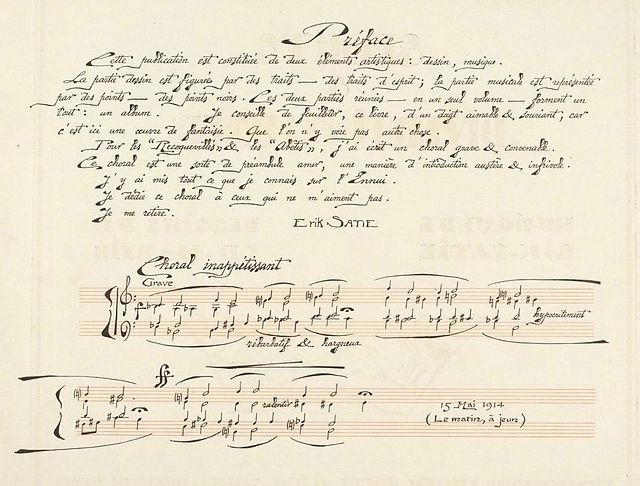 Préface
Cette publication est constituée de deux éléments artistiques : dessin, musique.
La partie dessin est figurée par des traits — des traits d'esprit ; la partie musicale est représentée
par des points — des points noirs. Ces deux parties réunies — en un seul volume — forment un
tout : un album. Je conseille de feuilleter, ce livre, d'un doigt aimable & souriant, car
c'est ici une œuvre de fantaisie. Que l'on n'y voie pas autre chose.
Pour les "Recroquevillés" & les "Abêtis", j'ai écrit un choral grave & convenable.
Ce choral est une sorte de préambule amer, une manière d'introduction austère & infrivole.
J'y ai mis tout ce que je connais sur l'Ennui.
Je dédie ce choral à ceux qui ne m'aiment pas.
Je me retire.
Erik SATIE
Choral inappétissant
Grave
f
hypocritement
rébarbatif & hargneux
ff
ralentir
15 Mai 1914
(Le matin, à jeun)